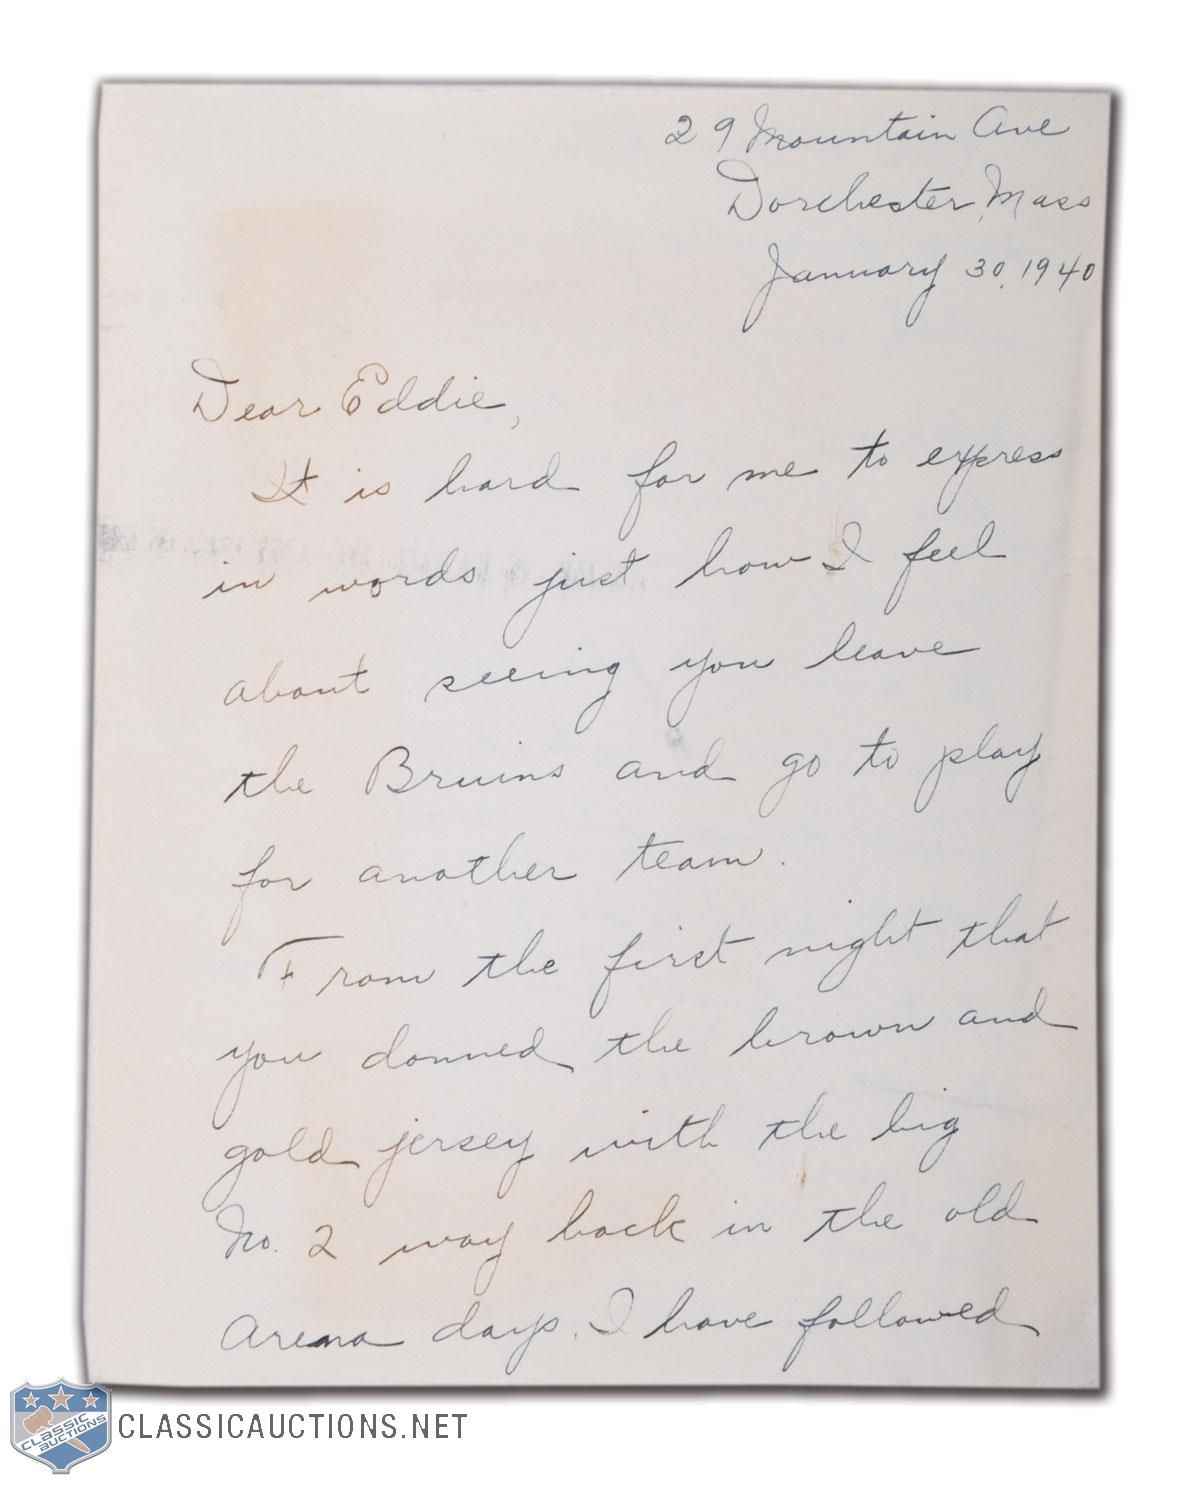 29 Mountain Ave
Dorchester, Mass
January 30, 1940
Dear Eddie,
It is hard for me to express
in words just how I feel
about seeing you leave
the Bruins and go to play
for another team.
From the first night that
you donned the brown and
gold jersey with the big
No. 2 way back in the old
Arena days, I have followed
CLASSIC AUCTIONS
CLASSICAUCTIONS.NET